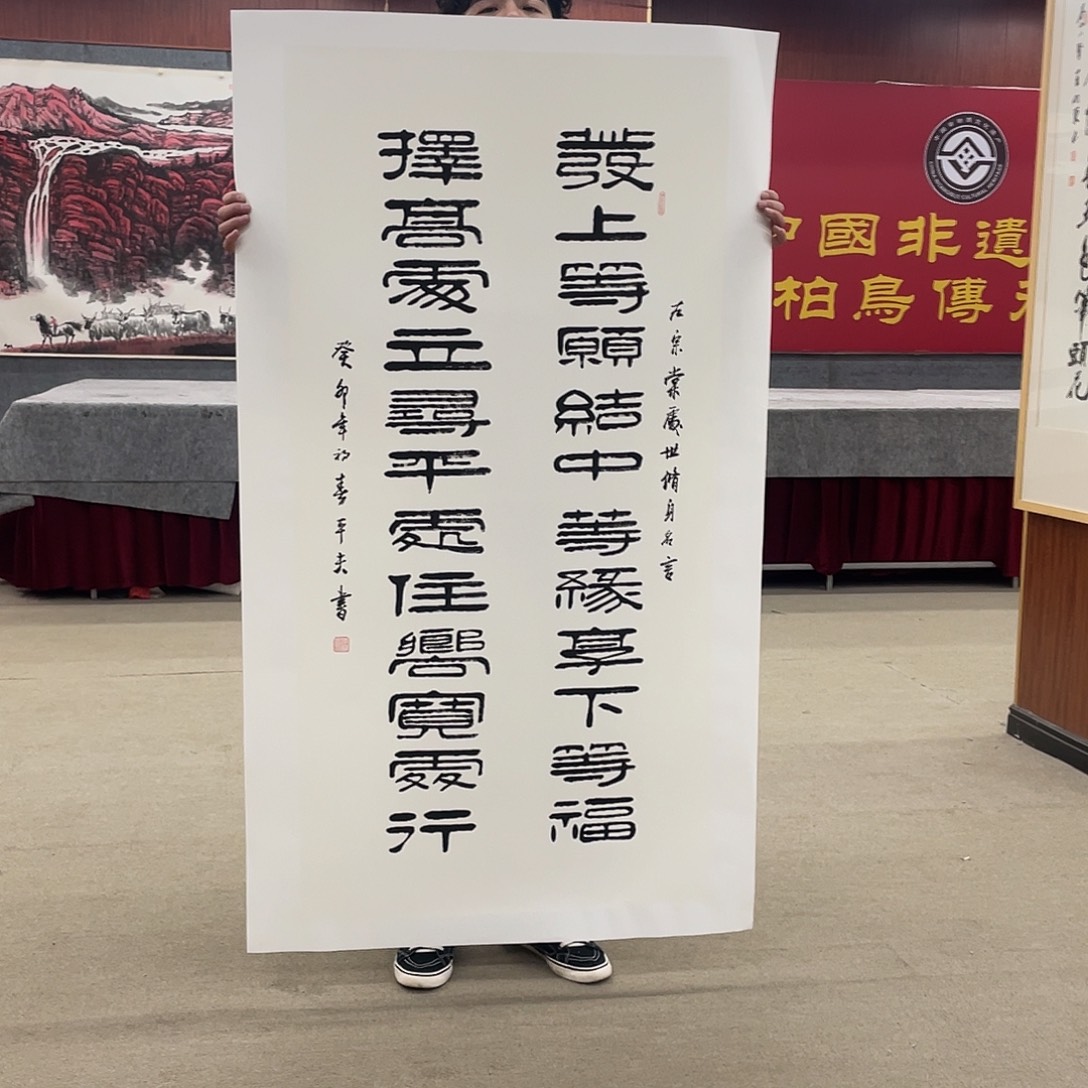 左宗棠處世脩身名言
發上等願結中等緣享下等福
擇高處立尋平處住嚮寬處行
癸卯年初春平夫書
中國非遺
柏鳥傳